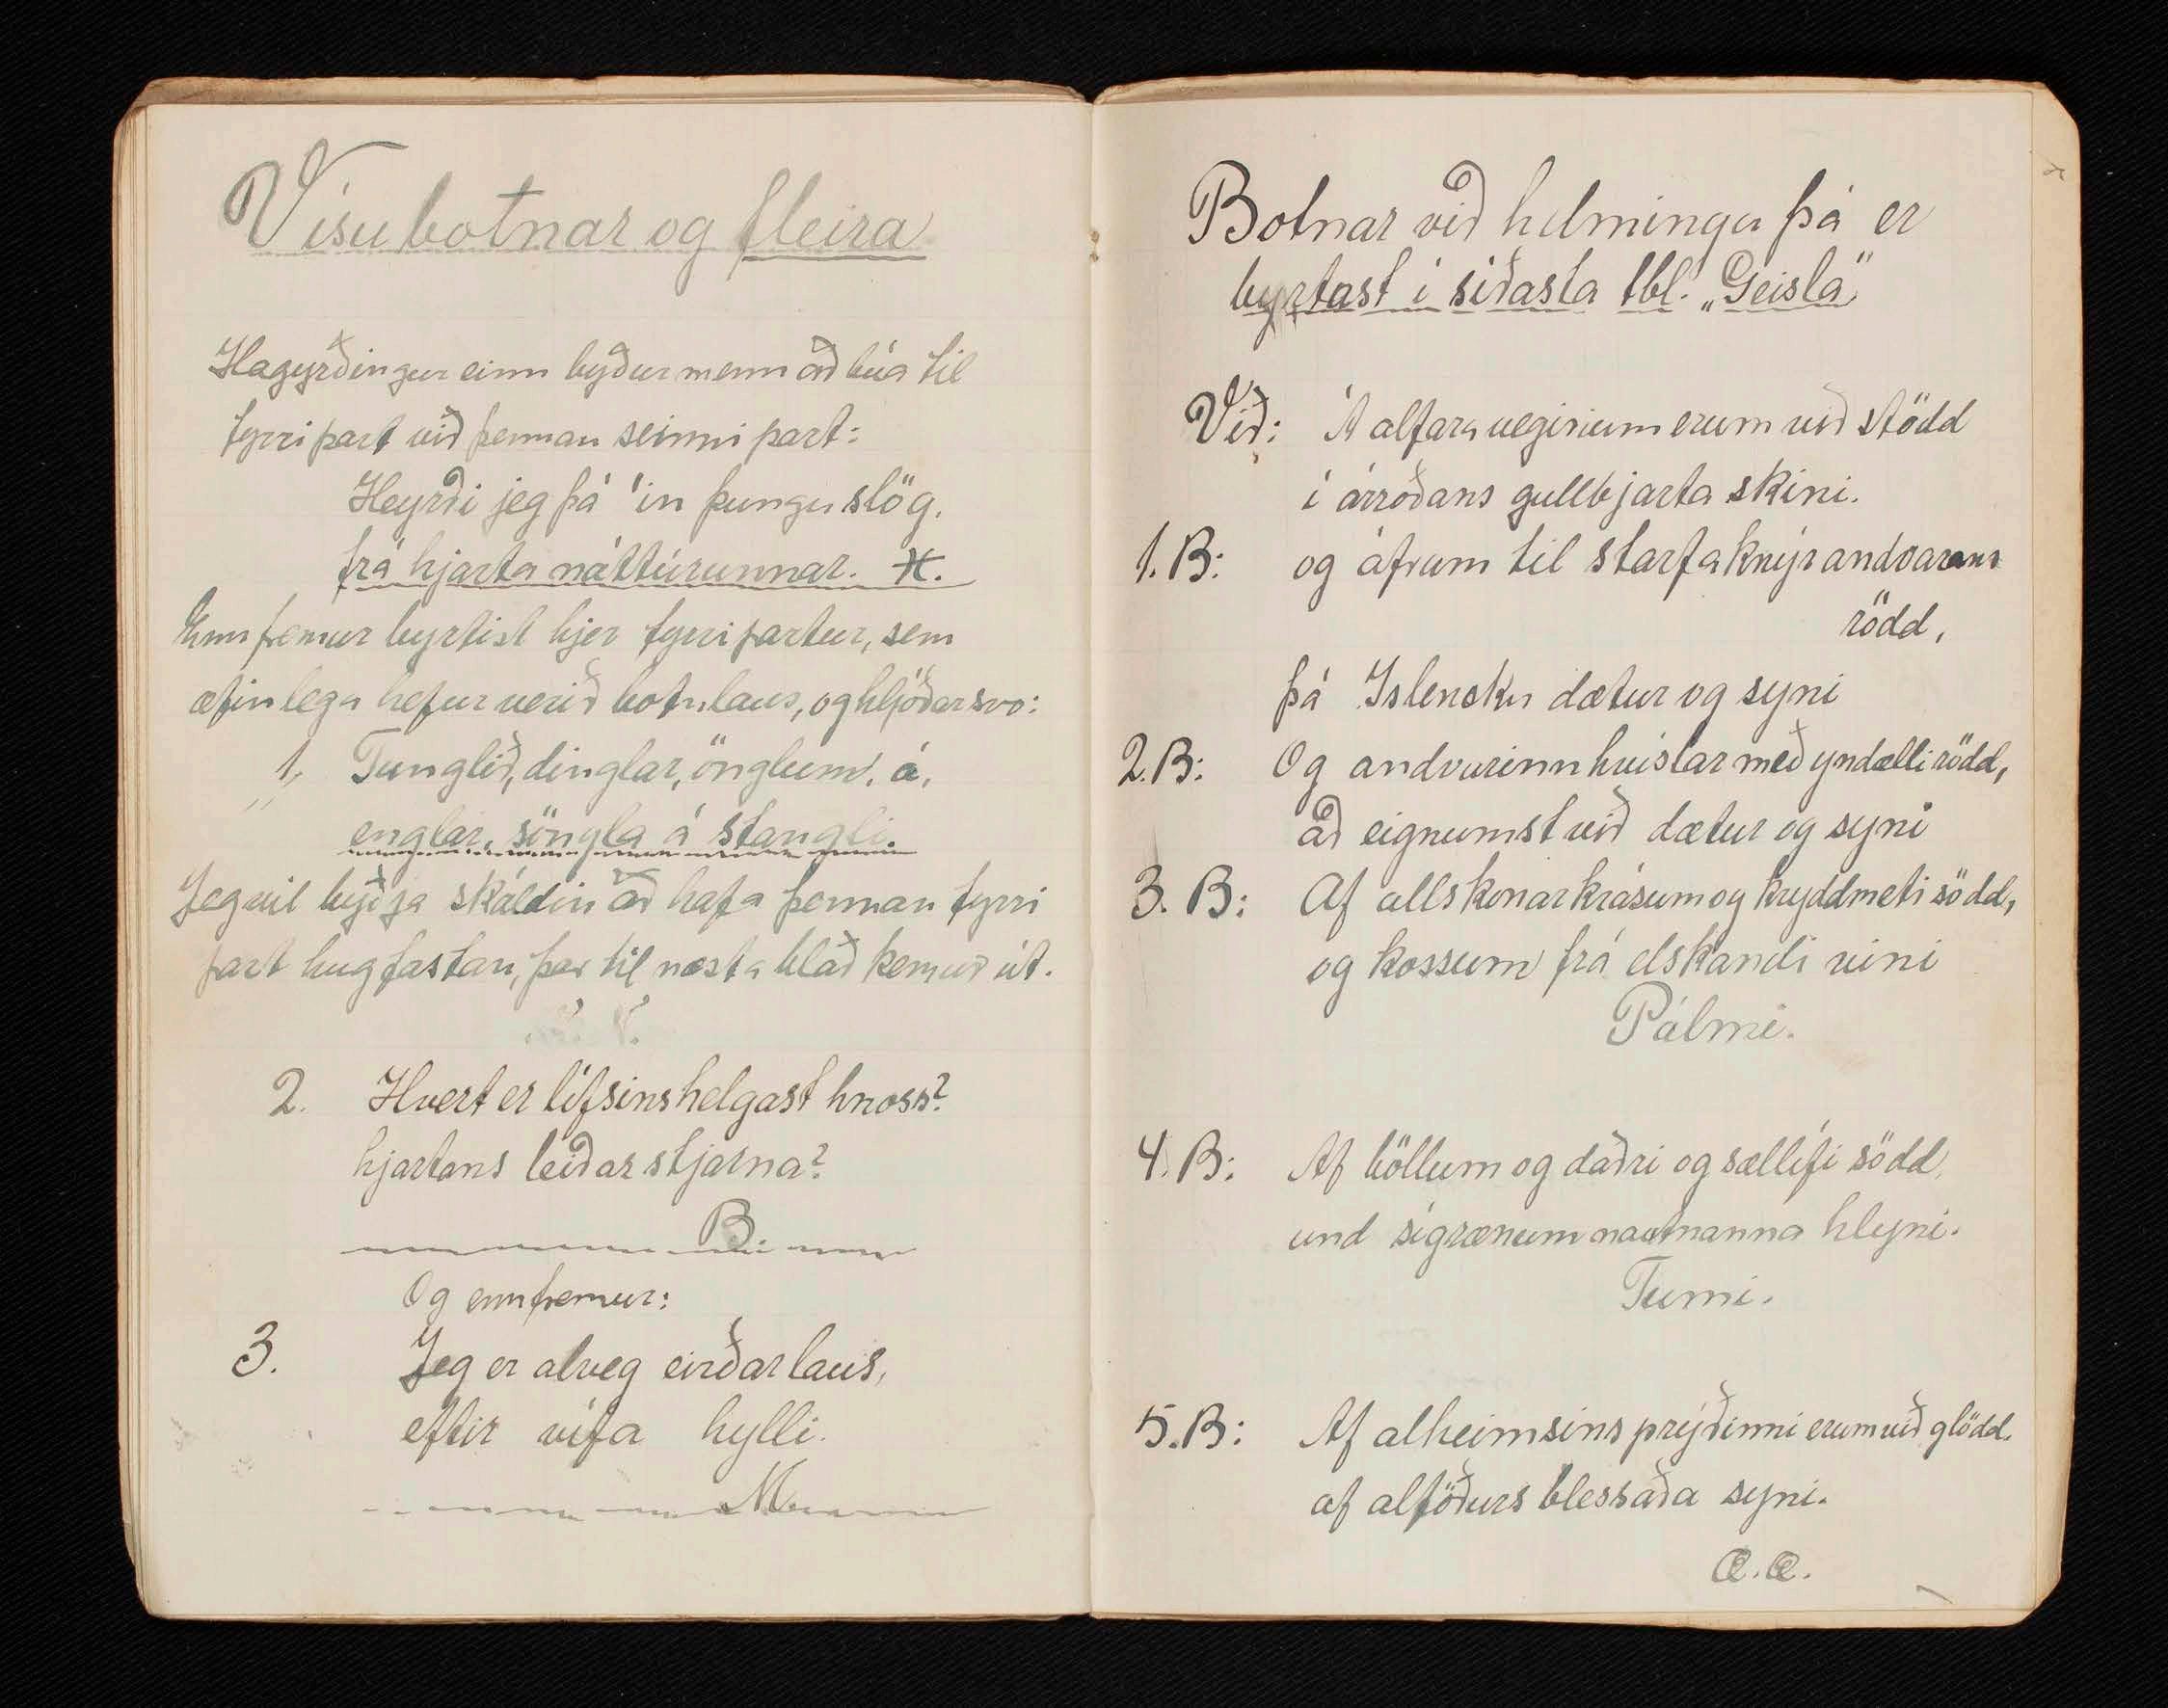 Vísu botnar og fleira
Hagyrðingur einn byður menn að búa til
fyrri part við þennan seinni part:
Heyrði jeg þá 'in þungu slög.
frá hjarta náttúrunnar. H.
Enn fremur byrtist hjer fyrri partur, sem
æfinlega hefur verið botnlaus, og hljóðar svo:
1, Tunglið, dinglar, önglum, á,
englar, söngla á stangli.
Jeg vil byðja skáldin að hafa þennan fyrri
part hugfastan, þar til næsta blað kemur út.
2. Hvert er lífsins helgast hnoss?
hjartans leiðar stjarna?
B.
Og ennfremur:
3. Jeg er alveg eirðarlaus,
eftir vífa hylli.
M
Botnar við helminga þá er
byrtast í síðasta tbl. „Geisla"
Við: Á alfara veginum erum við stödd
í árroðans gullbjarta skini.
1. B: og áfram til starfa knýr andvarans
rödd,
þá Islensku dætur og syni
2. B: Og andvarinn hvíslar með yndælli rödd,
að eignumst við dætur og syni
3. B: Af allskonar krásum og kryddmeti södd,
og kossum frá elskandi vini
Pálmi.
4. B: Af böllum og daðri og sællífi södd,
und sígrænum nautnanna hlyni.
Tumi.
5. B: Af alheimsins prýðinni erum við glödd.
af alföðurs blessaða syni.
Œ. Œ.